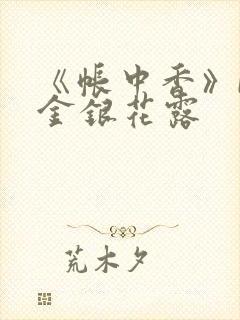 《帐中香》
金银花露
荒木夕